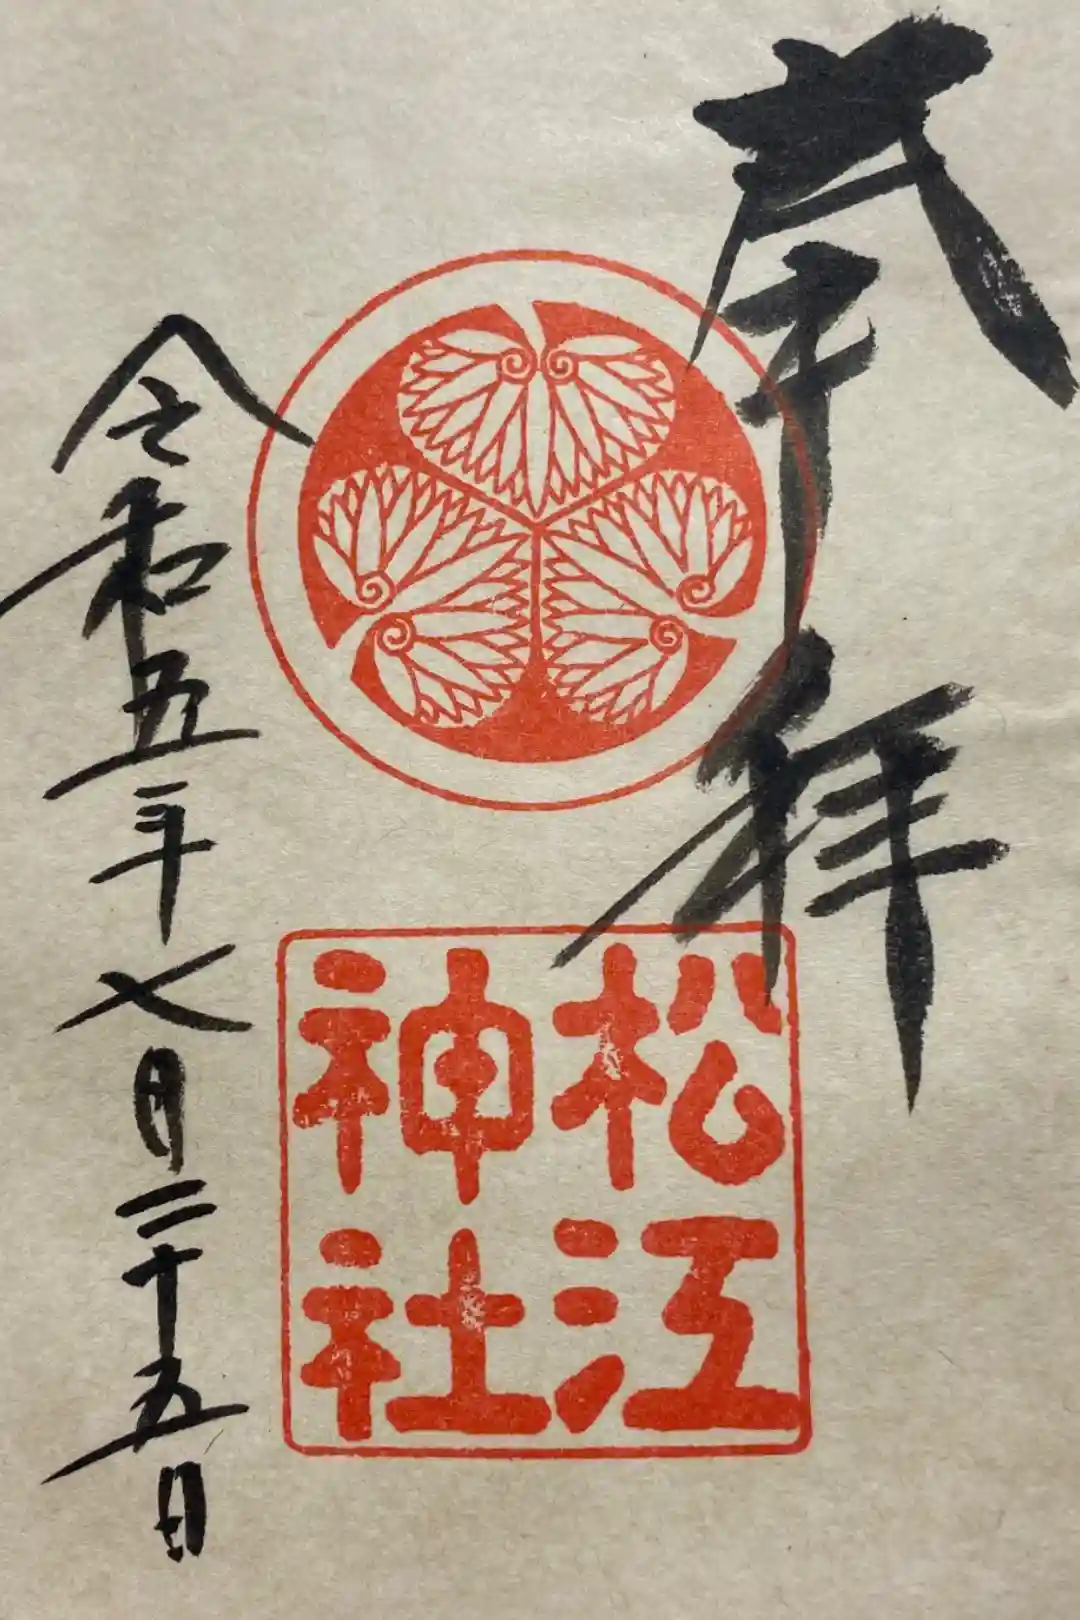 奉拝
松江
神社
令和五年七月二十五日